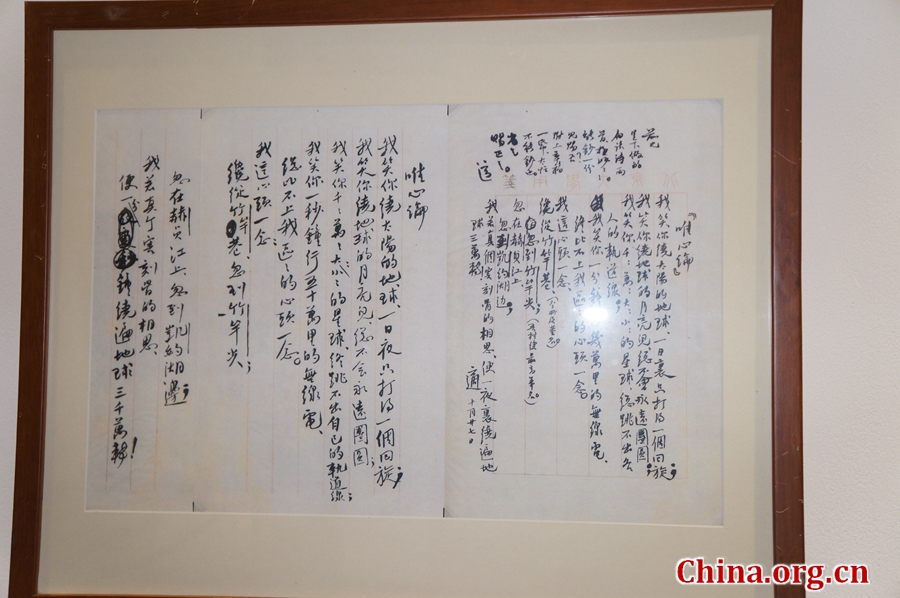 『唯心論』
我笑你繞太陽的地球、一日裏只打得一個回旋；
我笑你繞地球的月亮兒、總不會永遠團圓；
我笑你千々萬々大々小々的星球、總跳不出各
人的軌道線；
我笑你一分鐘行幾萬里的無線電、
終比不上我區々的心頭一念。
我這心頭一念、
纔從竹竿巷、
忽到竹竿尖；
忽在赫貞江上、
忽到凱約湖邊；
我若真個害刻骨的相思、便一夜裏繞遍地
球三萬轉
適 十月廿七日
唯心論
我笑你繞太陽的地球、一日夜只打得一個回旋；
我笑你繞地球的月亮兒、總不會永遠團圓；
我笑你千々萬々大々小々的星球、終跳不出自己的軌道線；
我笑你一秒鐘行五十萬里的無線電、
總比不上我區々的心頭一念。
我這心頭一念：
纔從竹竿巷、忽到竹竿尖；
忽在赫貞江上、忽到凱約湖邊；
我若真个害刻骨的相思、
便一分鐘繞遍地球三千萬轉！
China.org.cn